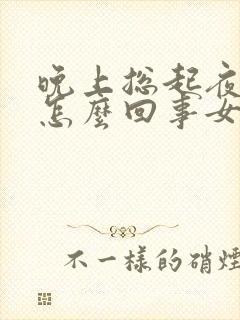 晚上总起夜
怎麼回事女
不一樣的硝煙